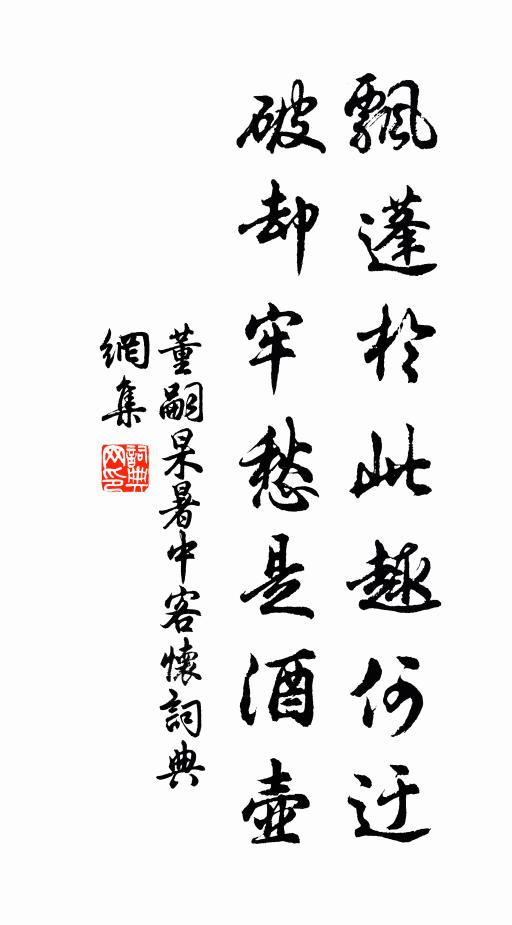 飄蓬於此趣何迂
破却牢愁是酒壺
董嗣杲暑中客懷詞典
網集
詞典網印